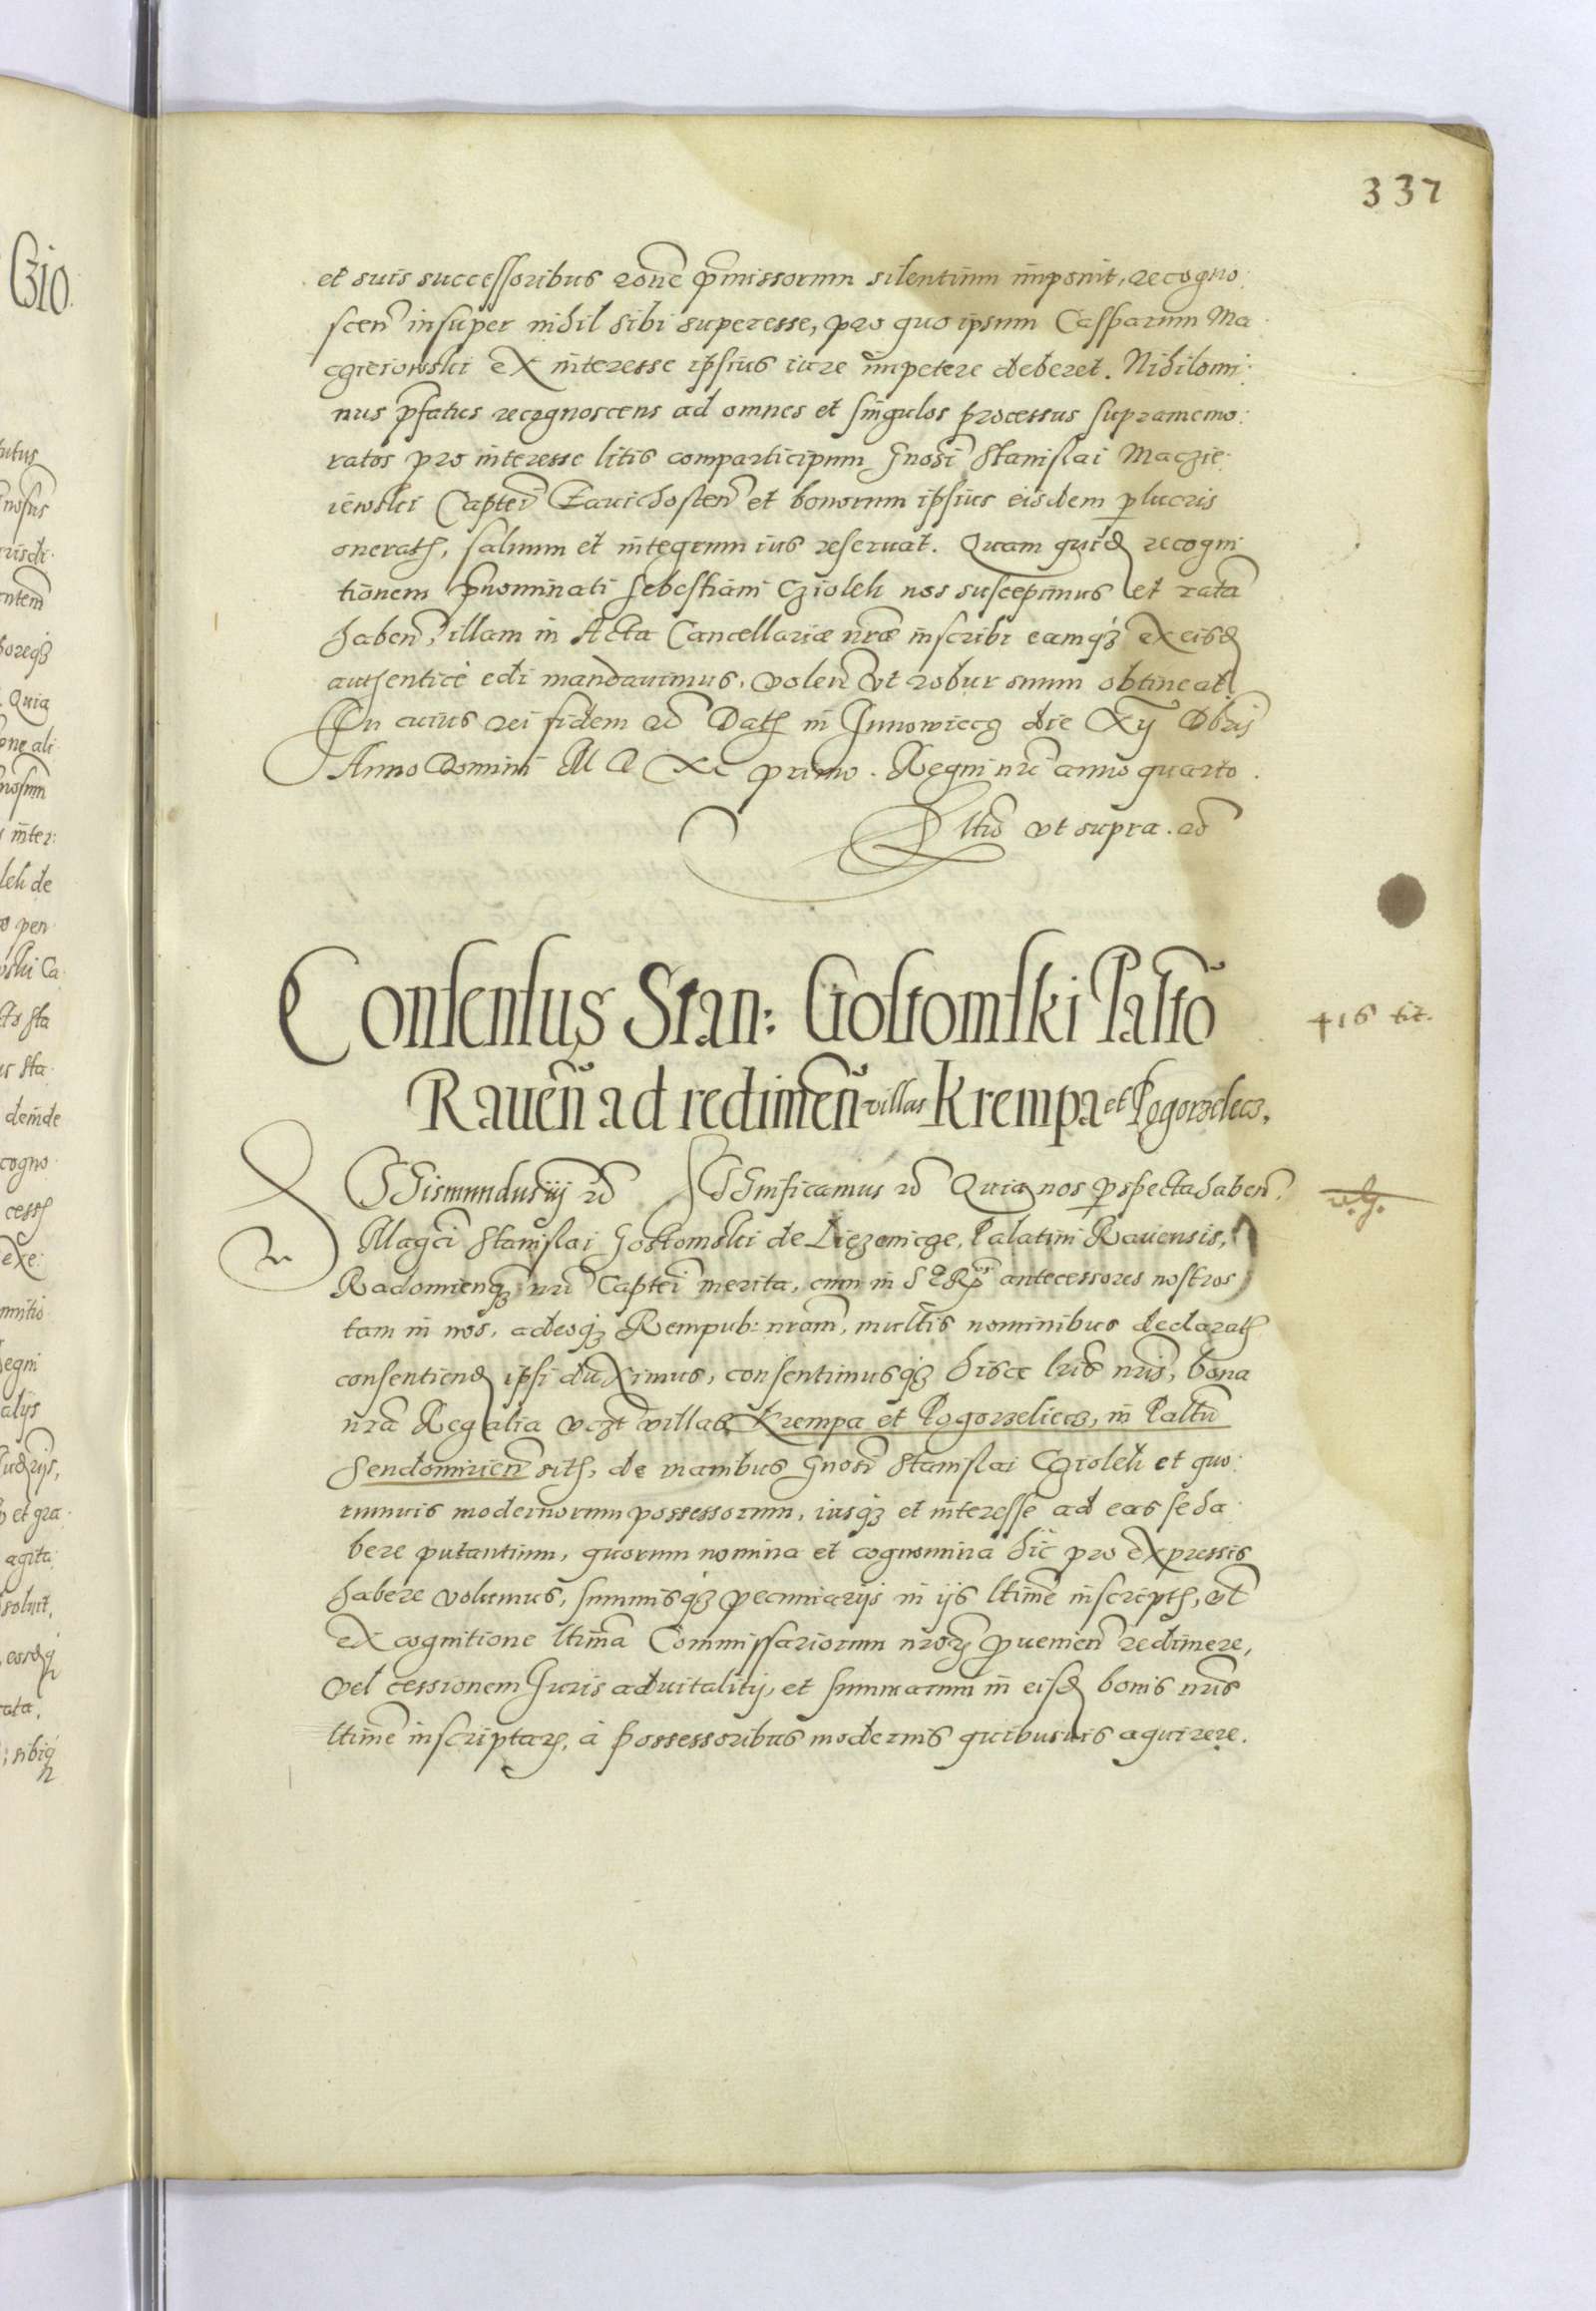 337
et suis successoribus rõnẽ p̃missorum silentium imponit, recogno:
scen̄ insuper nihil sibi superesse, pro quo ipsum Casparum Ma
cgieiowski ex interesse ipsius iure impetere deberet. Nihilomi:
nus p̃fatus recognoscens ad omnes et singulos processus supramemo:
ratos pro interesse litis comparticipum Gnosi Stanislai Maczie:
iewski Captei Zavichosten̄ et bonorum ipsius eisdem p lucris
onerat, salvum et integrum ius reservat. Quam quid recogni
tionem p̃nominati Sebestiani Cziolek nos suscepimus et ratã
haben̄, illam in Acta Cancellariæ nr̃æ inscribi eamq́ꝫ ex eisd
authenticè edi mandavimus, volen̄ vt robur suum obtineat.
In cuius rei fidem &c̃ Dat in Junowiecz die Xij Xbris
Anno Domini M D XC primo. Regni nr̃i anno quarto.
Rltio vt supra. &c̃
Consensus Stan: Gostomski Paltõ
Raueñ ad redimeñ villas Krempa et Pogorzelecz.
416 tit.
Sigismundus iij &c̃ Significamus &c̃ Quia nos perspecta haben̄
Magci Stanislai Gostomski de Liezenicze, Palatini Ravensis,
Radomienqꝫ nr̃i Captei merita, cum in S R̃ antecessores nostros
tam in nos, adeoqꝫ Rempub: nram̃, multis nominibus declarat
consentiend ipsi duximus, consentimusqꝫ hisce lr̃is nr̃is, bona
nrã Regalia vczt villas Krempa et Pogorzeliecz, in Paltũ
Sendomirien̄ sit, de manibus Gnosi Stanislai Cziolek et quo:
rumuis modernorum possessorum, iusqꝫ et interesse ad eas se ha
bere putantium, quorum nomina et cognomina hic pro expressis
habere volumus, summisqꝫ pecuniarijs in ijs ltimẽ inscript, vt
ex cognitione ltima Commissariorum nror̃ p̃uenien̄ redimere,
vel cessionem Juris advitalitij, et summarum in eisd bonis nr̃is
ltimẽ inscriptar, à possessoribus modernis quibusuis aquirere.